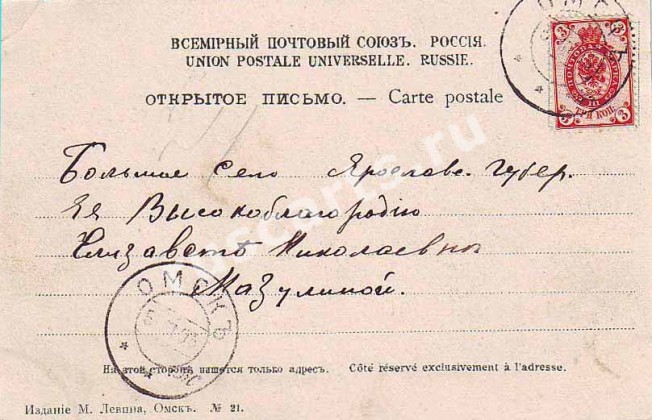 ВСЕМІРНЫЙ ПОЧТОВЫЙ СОЮЗЪ. РОССІЯ.
UNION POSTALE UNIVERSELLE. RUSSIE.
ОТКРЫТОЕ ПИСЬМО. — Carte postale
3 3
3 ТРИ КОП. 3
ОМСКЪ
Большое Село Ярославс. Губер.
Ея Высокоблагородію
Елизаветѣ Николаевнѣ
Мазулиной.
ОМСКЪ
На этой сторонѣ пишется только адресъ. Côté réservé exclusivement à l'adresse.
Изданіе М. Левина, Омскъ. № 21.